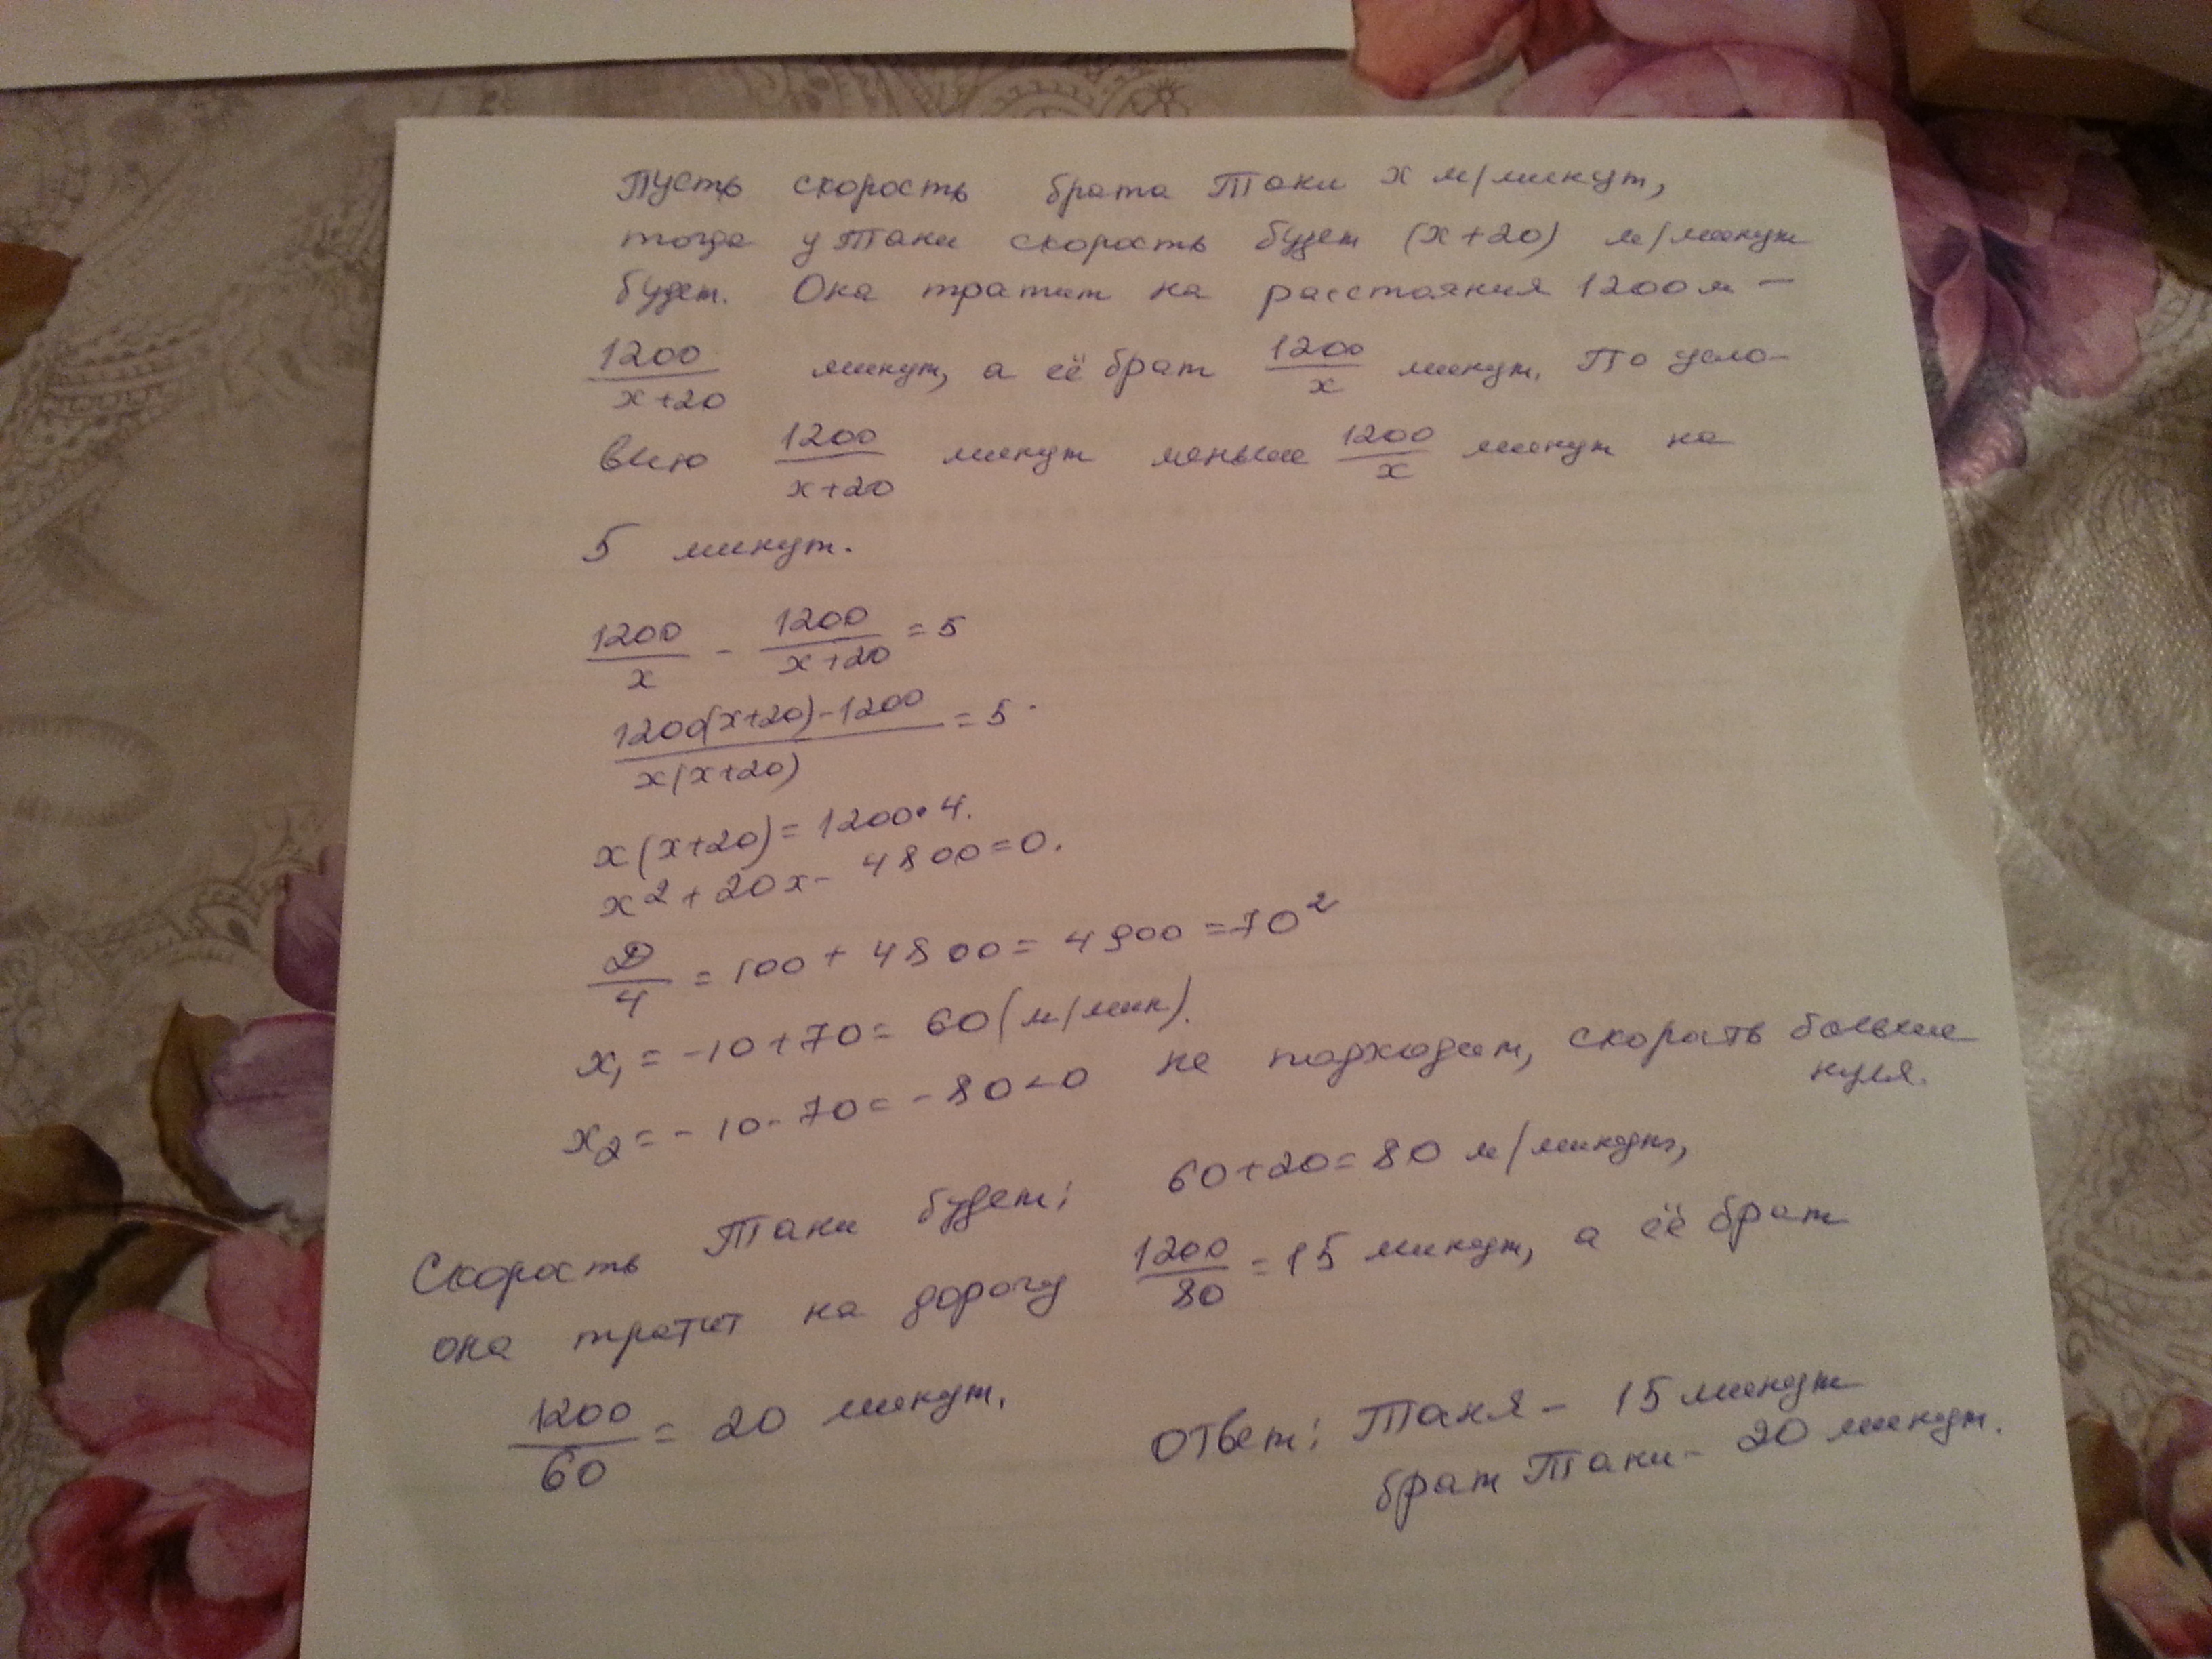 Пусть скорость брата Тани x м/минут,
тогда у Тани скорость будет (x+20) м/минут
будет. Она тратит на расстояния 1200 м –
1200/(x+20) минут, а её брат 1200/x минут. По усло-
вию 1200/(x+20) минут меньше 1200/x минут на
5 минут.
1200/x - 1200/(x+20) = 5
(1200(x+20)-1200)/(x(x+20)) = 5.
x(x+20) = 1200•4.
x2+20x- 4800=0.
D/4 = 100 + 4800 = 4900 = 70²
x₁ = -10+70 = 60 (м/мин).
x₂ = -10-70 = -80<0 не подходит, скорость больше
нуля.
Скорость Тани будет: 60+20=80 м/минуты,
она тратит на дорогу 1200/80 = 15 минут, а её брат
1200/60 = 20 минут.
Ответ: Таня – 15 минут
брат Тани – 20 минут.